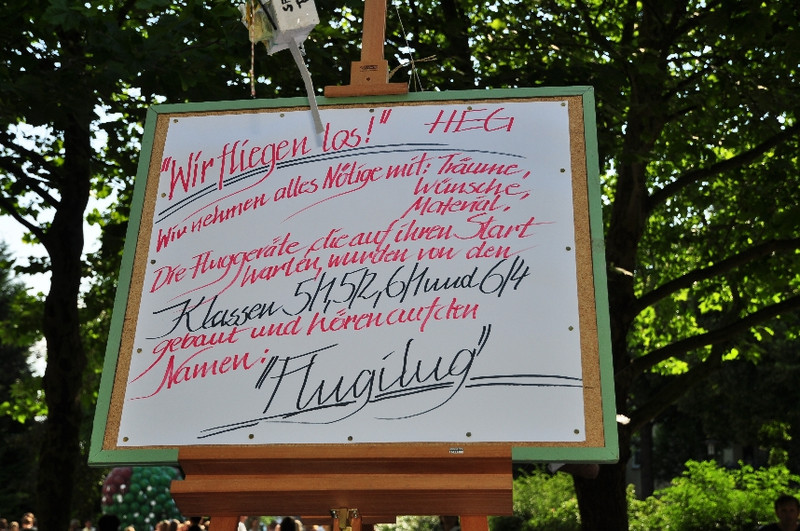 "Wir fliegen los!" HEG
Wir nehmen alles Nötige mit: Träume,
Wünsche,
Material.
Die Fluggeräte, die auf ihren Start
warten, wurden von den
Klassen 5/1, 5/2, 6/1 und 6/4
gebaut und hören auf den
Namen:
"Flugilug"